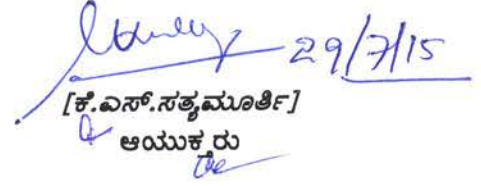 29/7/15
[ಕೆ.ಎಸ್.ಸತ್ಯಮೂರ್ತಿ]
ಆಯುಕ್ತರು